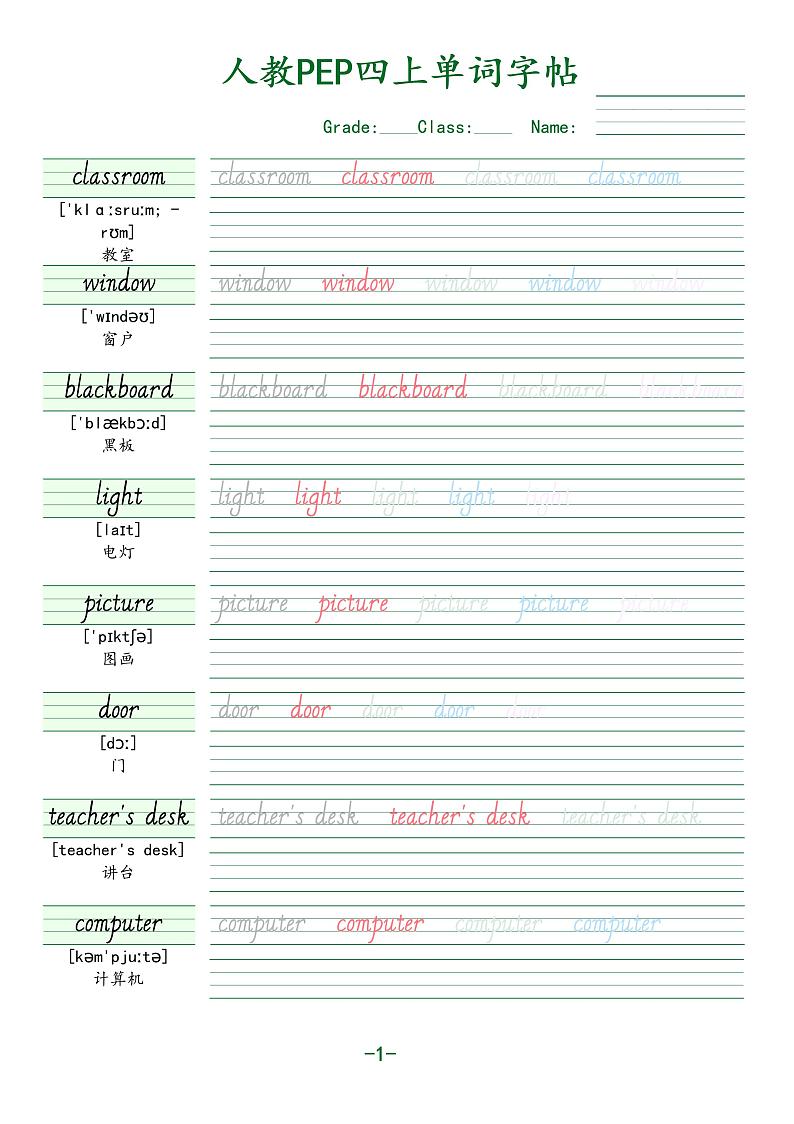 人教PEP四上单词字帖
Grade:____Class:____ Name:
classroom classroom classroom classroom classroom
[ˈklɑːsruːm; -
rʊm]
教室
window window window window window window
[ˈwɪndəʊ]
窗户
blackboard blackboard blackboard blackboard blackboard
[ˈblækbɔːd]
黑板
light light light light light light
[laɪt]
电灯
picture picture picture picture picture picture
[ˈpɪktʃə]
图画
door door door door door door
[dɔː]
门
teacher's desk teacher's desk teacher's desk teacher's desk
[teacher's desk]
讲台
computer computer computer computer computer
[kəmˈpjuːtə]
计算机
-1-